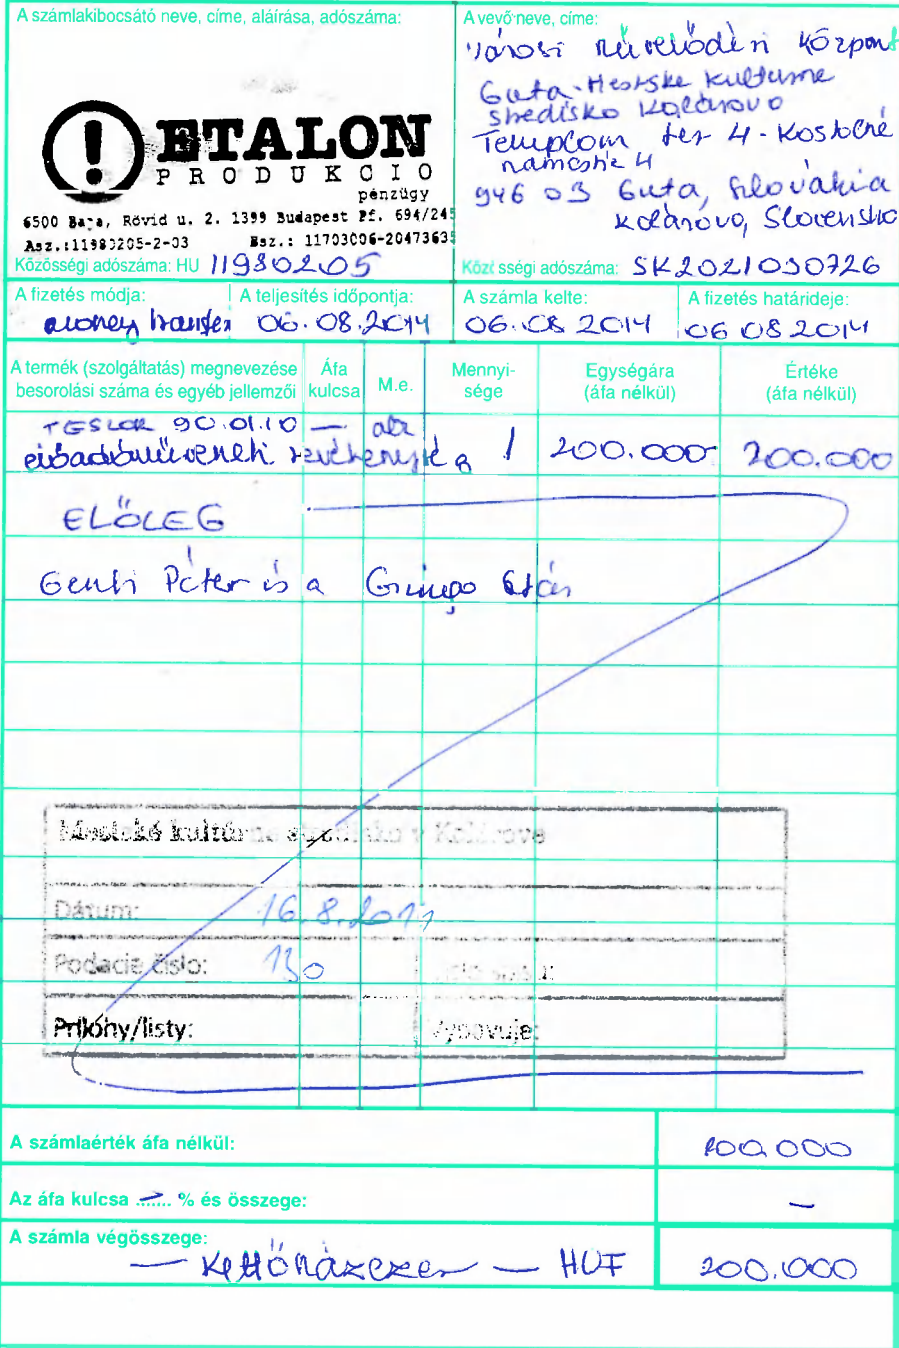 A számlakibocsátó neve, címe, aláírása, adószáma:
ETALON
PRODUKCIO
pénzügy
6500 Baja, Rövid u. 2. 1399 Budapest Pf. 694/245
Asz.:11980205-2-03 Bsz.: 11703006-2047363
Közösségi adószáma: HU 11980205
A vevő neve, címe:
Városi Művelődési Központ
Guta - Mestske kulturne
stredisko Kolárovo
Templom tér 4 - Kostolné
námestie 4
946 03 Guta, Slovakia
Kolárovo, Slovensko
Közösségi adószáma: SK2021030726
A fizetés módja: A teljesítés időpontja: A számla kelte: A fizetés határideje:
money transfer 06.08.2014 06.08 2014 06 08 2014
A termék (szolgáltatás) megnevezése besorolási száma és egyéb jellemzői
Áfa kulcsa
M.e.
Mennyi-sége
Egységára (áfa nélkül)
Értéke (áfa nélkül)
TESZOR 90.01.10 —
előadóművészeti tevékenység 1 200.000 200.000
ELŐLEG
Péter és a Gringo Sztár
Mestské kultúrne stredisko v Kolárove
Dátum: 16.8.2011
Podacie číslo: 130
Prílohy/listy: Vybavuje:
A számlaérték áfa nélkül: 200.000
Az áfa kulcsa — % és összege: —
A számla végösszege:
— Kettőszázezer — HUF 200.000